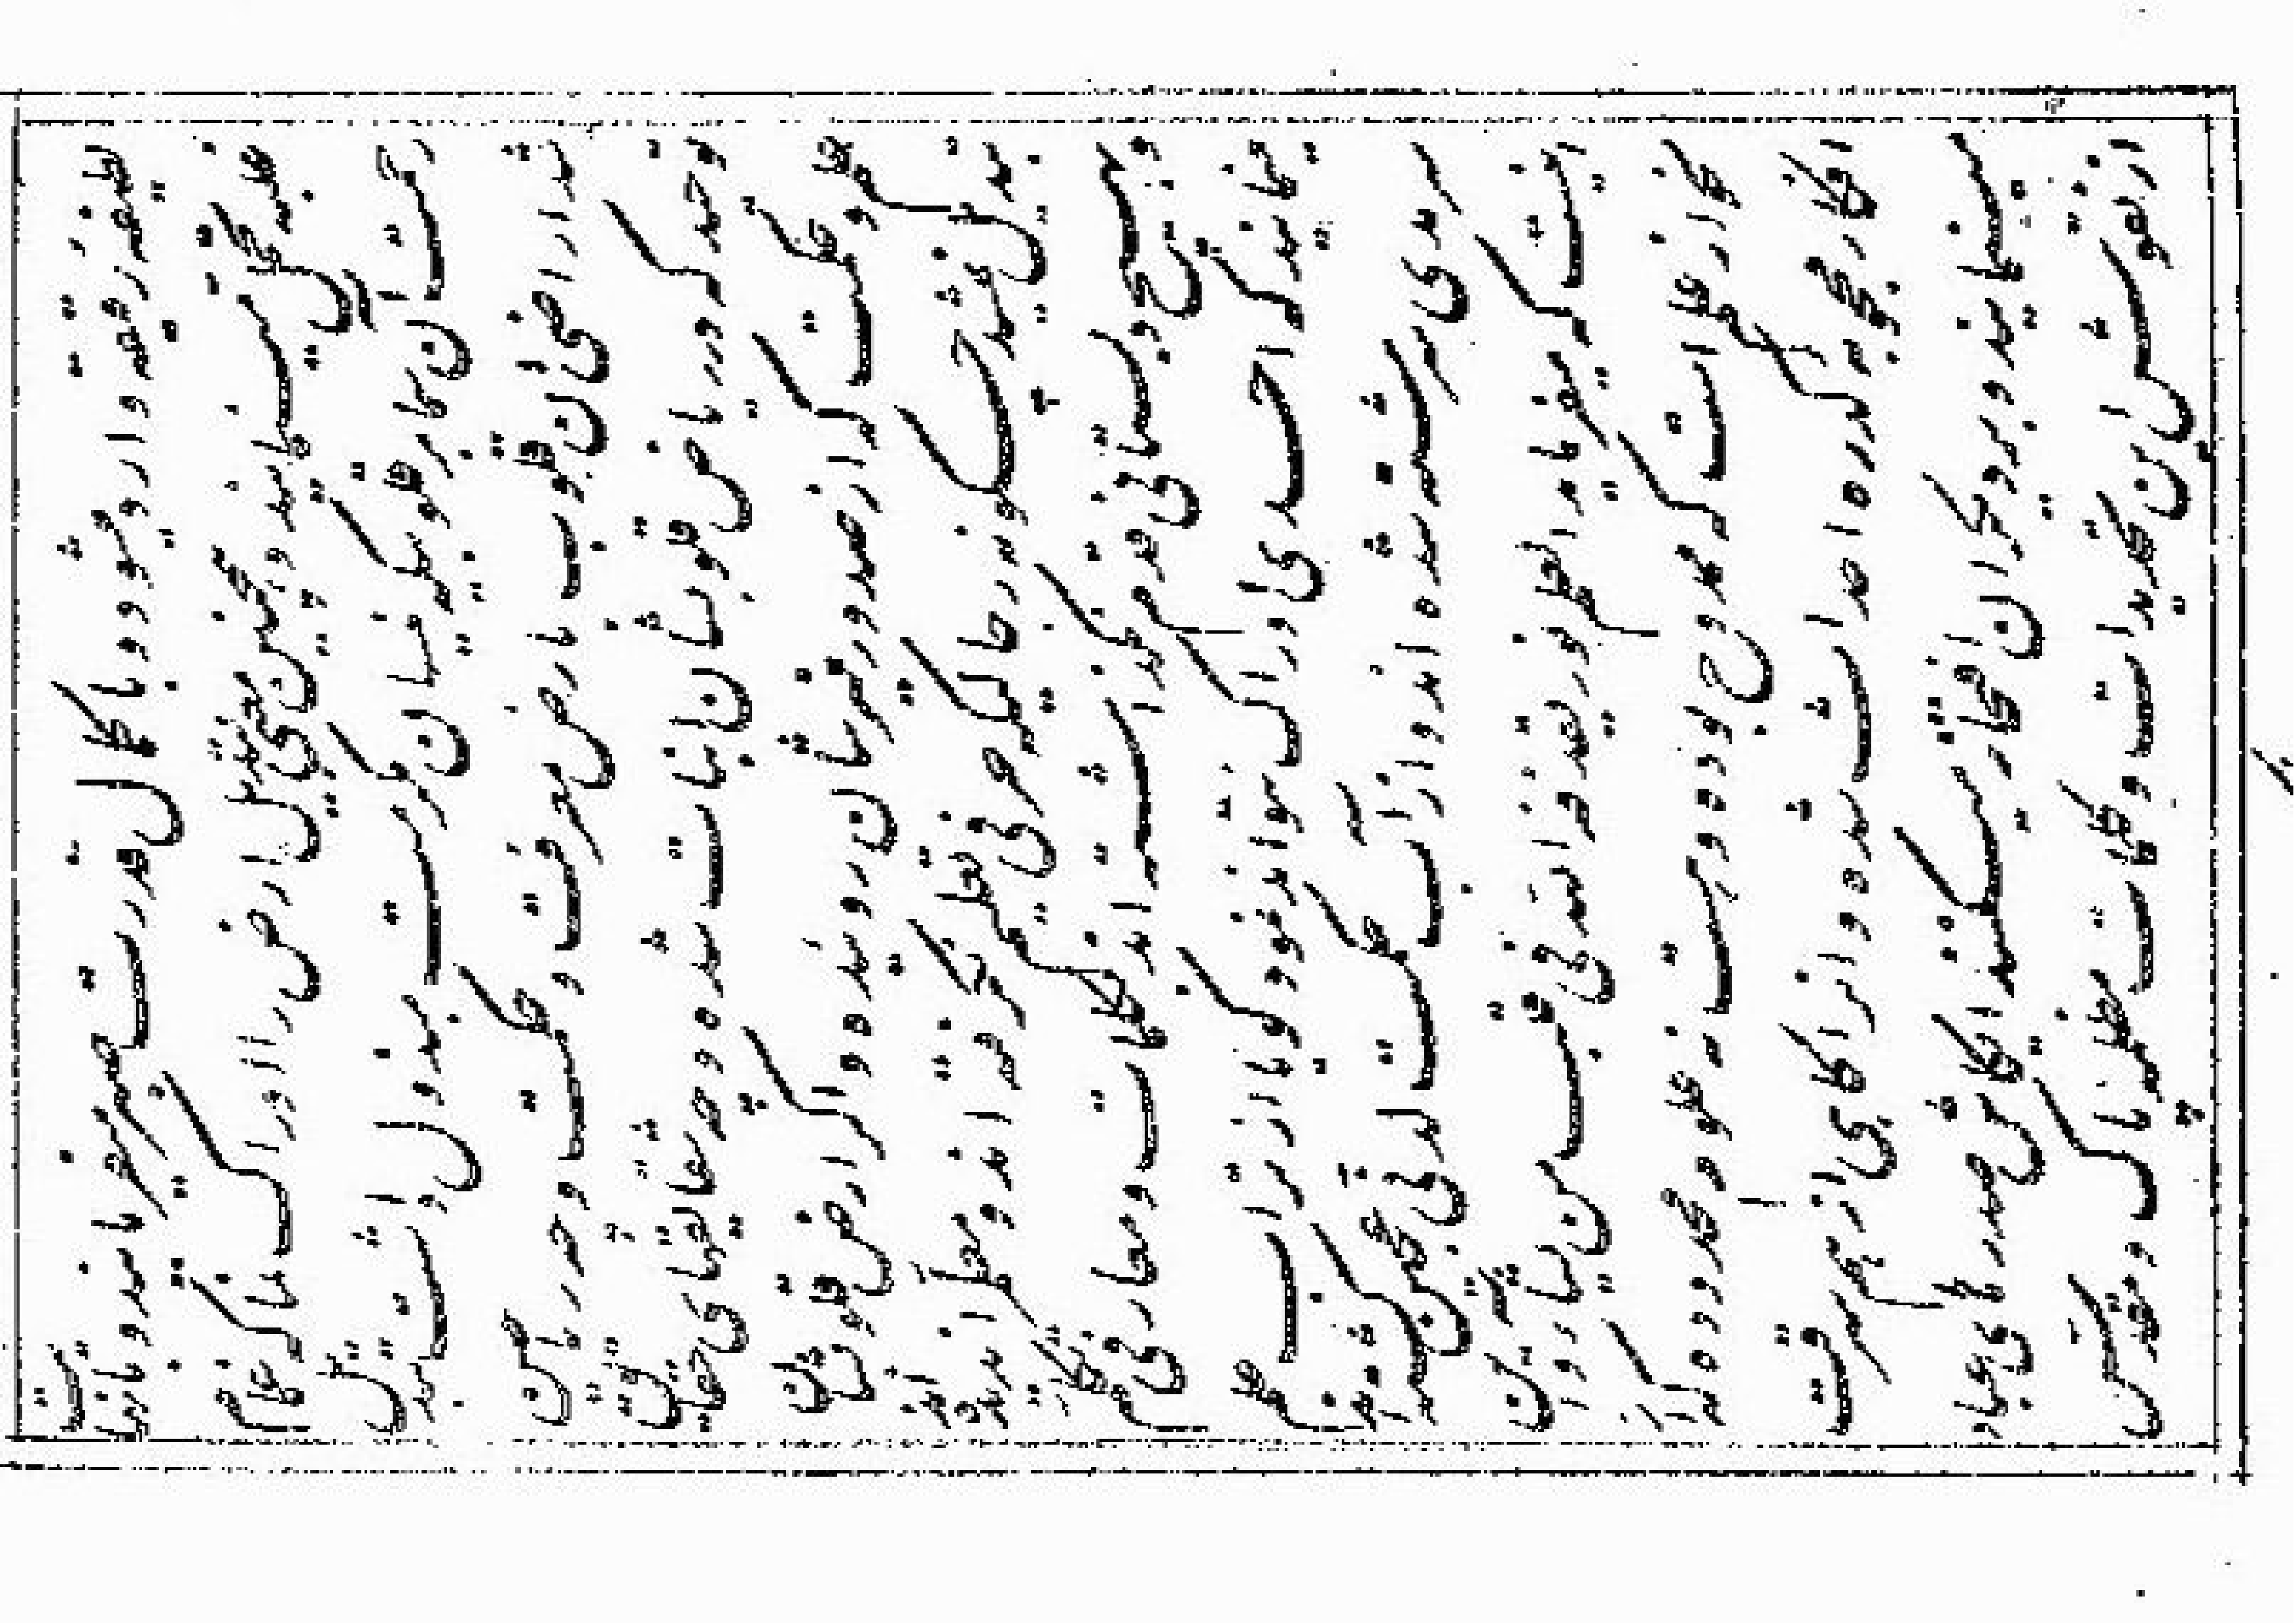 با کمال قدرت
و همچنین معنی تبدیل ارض را ادراک نما که غمام
رحمت آن سما بر قلوبیکه نیسان مکرمت مبذول داشت تبدیل
شد اراضی آن قلوب بارض معرفت و حکمت و چه ریاحین
توحید که در ریاض قلوبشان انبات شده و چه شقایقهای حقایق
علم و حکمت که از صدور منیرشان روئیده و اگر ارض قلوبشان
تبدیل نمیشد چگونه رجالی که حرفی تعلیم نگرفته اند و معلم را ندیده اند
و بهیچ دبستانی قدم نگذاشته اند بکلمات و معارفی تکلم
مینمایند که احدی ادراک نتواند نمود گویا از تراب علم
سرمدی سرشته شده اند و از آب حکمت لدنی عجین گشته اند
اینست که میفرماید العلم نور یقذفه الله فی قلب من یشاء و این
نحو از علم است که ممدوح بوده و هست نه علوم محدوده که از
افکار محجوبه کدره احداث شده و آنرا گاهی از هم سرقت
مینمایند و بر دیگران افتخار میکنند ایکاش صدرهای عباد
از نقوش این تحدیدات و کلمات مظلمه پاک و مقدس میشد